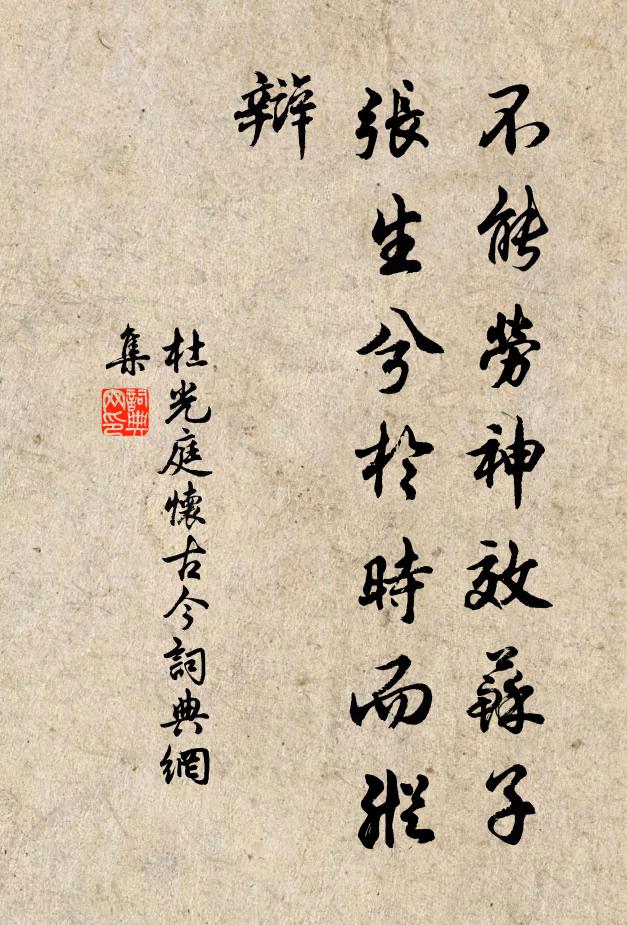 不能勞神效蘇子
張生兮於時而縱
辯
杜光庭懷古今詞典網
集
詞典
网印